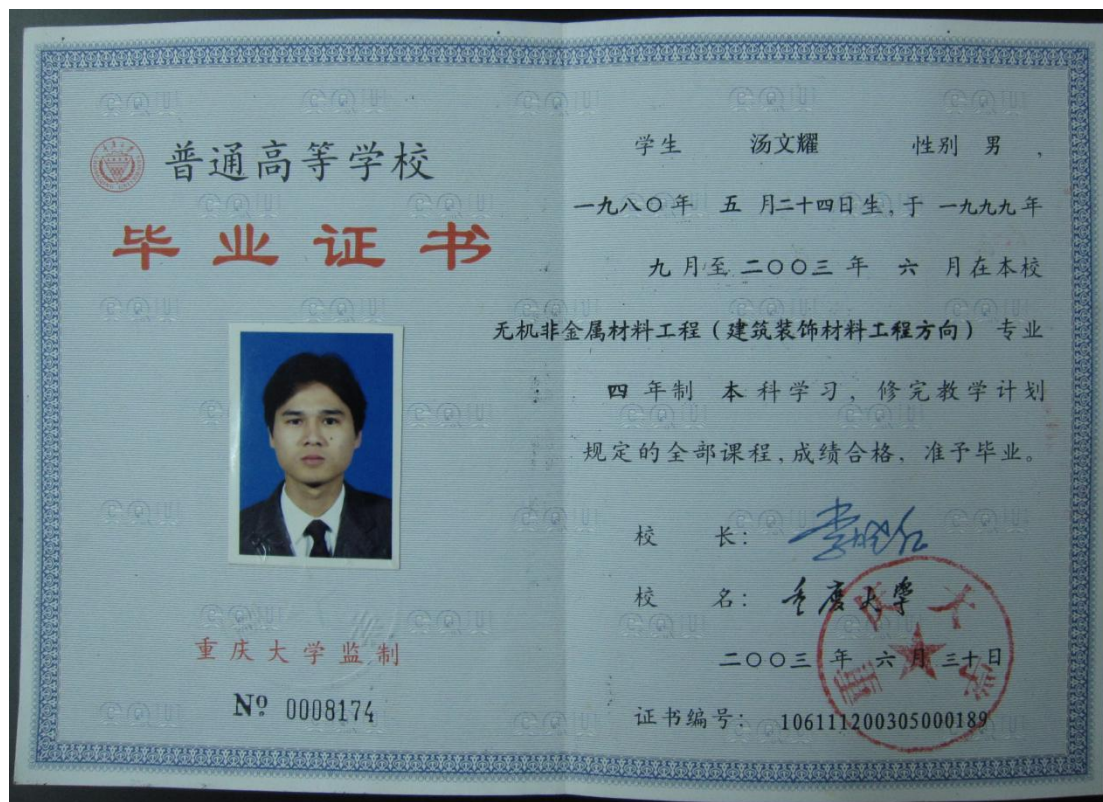 普通高等学校
毕业证书
重庆大学监制
Nº 0008174
学生 汤文耀 性别 男 ,
一九八〇年 五 月二十四日生,于 一九九九年
九 月至 二〇〇三 年 六 月在本校
无机非金属材料工程（建筑装饰材料工程方向） 专业
四 年制 本 科学习, 修完教学计划
规定的全部课程,成绩合格, 准予毕业。
校 长:
校 名: 重庆大学
二〇〇三 年 六 月 三十日
证书编号: 106111200305000189
重庆大学
CQU